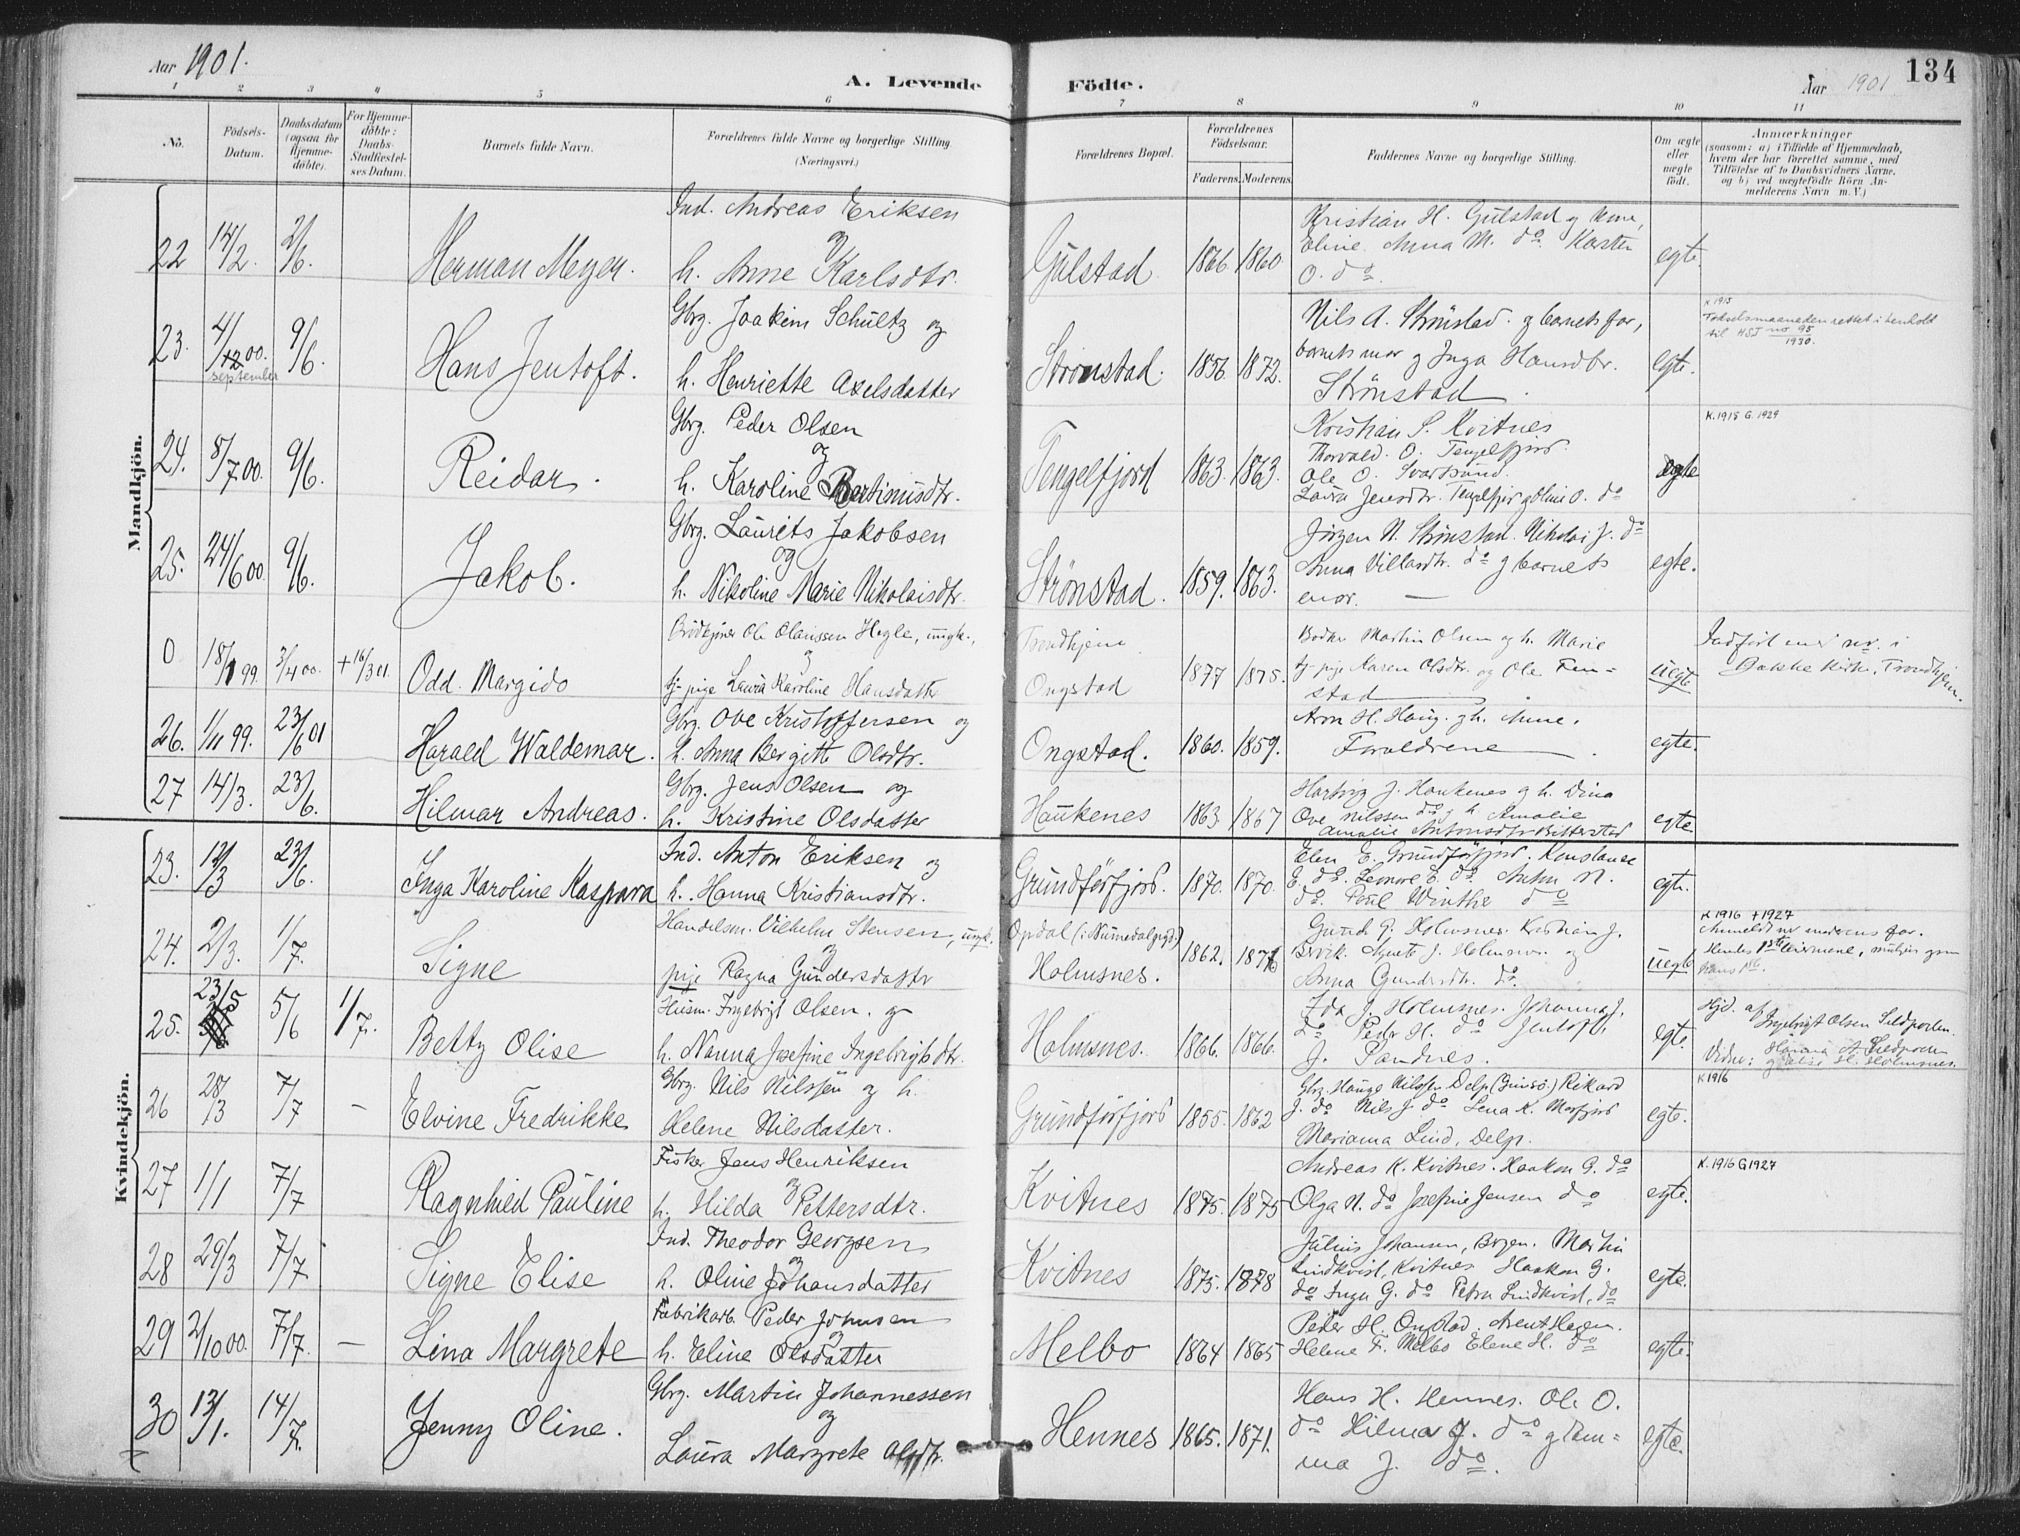 Aar 1901.
A. Levende
Födte.
Aar 1901
134
1 2 3 4 5 6 7 8 9 10 11
No.
Födsels-
Datum.
Daabsdatum
(ogsaa for
Hjemme-
döbte).
For Hjemme-
döbte:
Daabs-
Stadfæstel-
ses Datum.
Barnets fulde Navn.
Forældrenes fulde Navne og borgerlige Stilling
(Næringsvei.)
Forældrenes Bopæl.
Forældrenes
Födselsaar.
Faderens. Moderens.
Faddernes Navne og borgerlige Stilling.
Om ægte
eller
uægte
födt.
Anmærkninger
(saasom: a) i Tilfælde af Hjemmedaab,
hvem der har forrettet samme, med
Tilföielse af to Daabsvidners Navne,
og b) ved uægtefödte Börn An-
melderens Navn m. V.)
Mandkjön.
22 14/2. 2/6. Herman Meyer.
Ind. Andreas Eriksen
og
h. Anne Karlsdtr.
Gulstad. 1866 1860
Kristian H. Gulstad og
Eline. Anna M. do. Karsten
O. do
egte.
23. 4/12 00. september 9/6. Hans Jentoft.
Gbrg. Joakim Schultz og
h. Henriette Axelsdatter
Strønstad. 1856. 1872.
Nils A. Strønstad. og barnets far,
barnets mor og Inga Hansdtr.
Strønstad.
egte.
K 1915
Fødselsmaaneden rettet i henhold
til HSJ no 95
1930.
24. 8/7 00. 9/6. Reidar.
Gbrg. Peder Olsen
og
h. Karoline Bertinusdtr.
Tengelfjord 1863. 1863.
Kristian S. Kvitnes
Thorvald. O. Tengelfjord.
Ole O. Svartsund.
Laura Jensdtr. Tengelfjor Oline O. do
egte
K. 1915 G. 1929
25. 24/6 00 9/6. Jakob.
Gbrg. Laurits Jakobsen
og
h. Nikoline Marie Nikolaisdtr.
Strønstad. 1859. 1863.
Jørgen N. Strønstad. Nikolai J. do
Anna Villasdtr. do og barnets
mor.
egte.
0 18/1 99. 3/4 00. + 16/3 01. Odd. Margido
Brødkjører Ole Olaussen Hegle, ungk.,
og
tj-pige Laura Karoline Hansdatter
Trondhjem
Ongstad 1877 1875.
Bødker Martin Olsen og h. Marie
tj-pige Karen Olsdtr. og Ole Fin-
stad
uegte
Indført med nr. i
Bakke Kirke, Trondhjem.
26. 1/11 99. 23/6 01 Harald Waldemar.
Gbrg. Ove Kristoffersen og
h. Anna Bergitte Olsdtr.
Ongstad. 1860. 1859.
Aron H. Haug. og h. Anne.
Forældrene
egte.
27 14/3. 23/6. Hilmar Andreas.
Gbrg. Jens Olsen og
h. Kristine Olsdatter
Haukenes 1863 1867
Hartvig J. Haukenes og h. Dina
Ove Nilssen do og h Amalie
Amalie Antonsdtr Bitterstad
egte
Kvindekjön.
23. 12/3 23/6. Inga Karoline Kaspara
Ind. Anton Eriksen og
h. Hanna Kristiansdtr.
Grundførfjord. 1870. 1870.
Elen E. Grundførfjord. Konstanse
E. do. Lenore E. do. Anton N.
do. Poul Winther do
egte.
24. 2/3. 1/7. Signe
Handelsm. Vilhelm Stensen, ungk.
og
pige Ragna Gundersdatter
Opdal (i Numedalsgd.)
Holmsnes. 1862. 1876
Gunder G. Holmsnes. Kristian J.
Agnete J. Holmsnes. og
Anna Gundersdtr. do.
uegte
K 1916 + 1927
Anmeldt av moderens far.
25. 23/5 5/6 1/7. Betty Olise
Husm. Ingebrigt Olsen. og
h. Nanna Josefine Ingebrigtsdtr.
Holmsnes. 1866. 1866.
Ida J. Holmsnes. Johanna J.
do Peder H. do Jentoft
J. Sandnes.
egte.
Hjd. af
Ingebrigt Olsen Sildpollen.
Vidner: Hanna A. Sildpollen
og Elise H. Holmsnes.
26 28/3 7/7 – Elvine Fredrikke
Gbrg. Nils Nilssen og h.
Helene Nilsdatter.
Grundførfjord 1855. 1862
Gbrg. Hauge Nilssen Delp (Gimsø) Rikard
J. do Nils J. do Lena K. Morfjord
Marianna Lind, Delp.
egte.
K 1916
27 1/1 7/7 – Ragnhild Pauline
Fisker Jens Henriksen
og
h. Hilda Pettersdtr.
Kvitnes 1875. 1875
Andreas K. Kvitnes. Haakon G. do
Olga N. do Josefine Jensen do
egte.
K. 1916 G 1927
28 29/3 7/7 Signe Elise
Ind. Theodor Georgsen
og
h. Oline Johansdatter
Kvitnes 1875. 1878
Julius Johansen, Bogen. Martin
Lindkvist, Kvitnes Haakon G.
do Inga G. do Petra Lindkvist, do
egte.
29 2/10 00 7/7. – Lina Margrete
Fabrikarb. Peder Johnsen
og
h. Eline Olsdatter
Melbo 1864 1865
Peder H. Onstad. Arent Hagen.
Helene F. Melbo Elene H. do
egte.
30 13/1. 14/7. Jenny Oline.
Gbrg. Martin Johannessen
og
Laura Margrete Olsdtr.
Hennes 1865. 1871.
Hans H. Hennes. Ole O.
do Hilmar J. do og Em-
ma J. do.
egte.